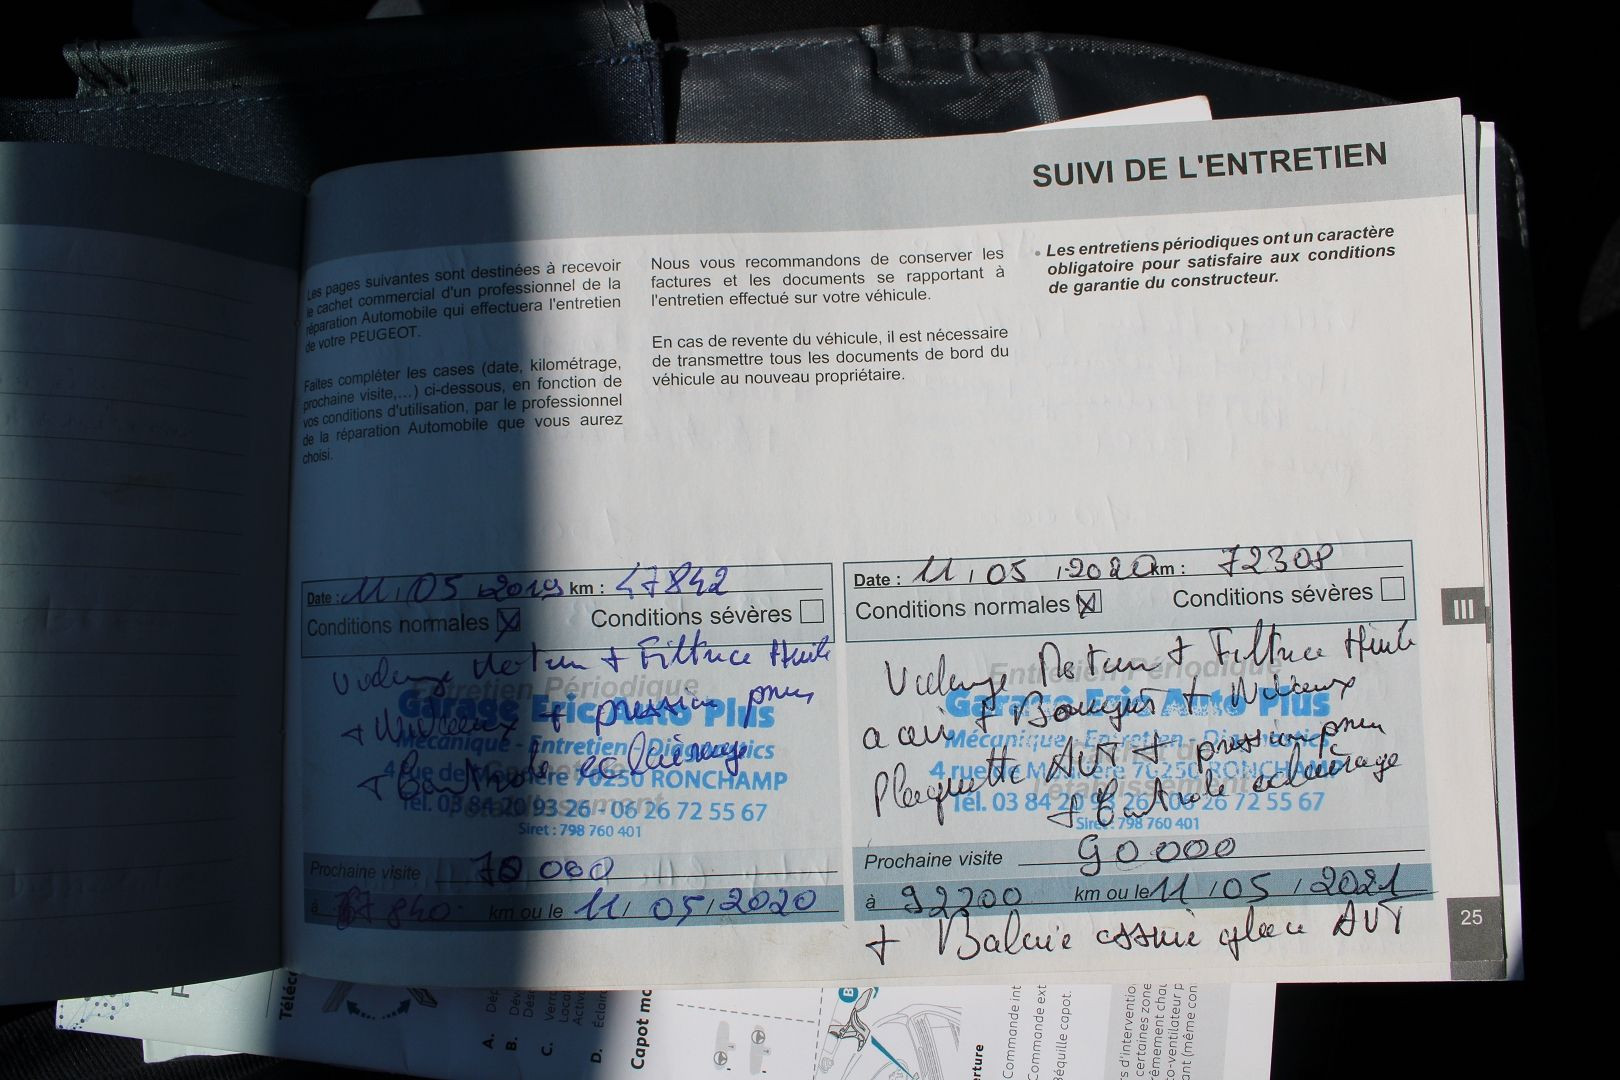 SUIVI DE L'ENTRETIEN
Les pages suivantes sont destinées à recevoir
le cachet commercial d'un professionnel de la
réparation Automobile qui effectuera l'entretien
de votre PEUGEOT.
Faites compléter les cases (date, kilométrage,
prochaine visite,...) ci-dessous, en fonction de
vos conditions d'utilisation, par le professionnel
de la réparation Automobile que vous aurez
choisi.
Nous vous recommandons de conserver les
factures et les documents se rapportant à
l'entretien effectué sur votre véhicule.
En cas de revente du véhicule, il est nécessaire
de transmettre tous les documents de bord du
véhicule au nouveau propriétaire.
• Les entretiens périodiques ont un caractère
obligatoire pour satisfaire aux conditions
de garantie du constructeur.
Date : 11/05/2019 km : 47842
Conditions normales Conditions sévères
Vidange Moteur + Filtrice Huile
+ Niveaux + pression pneu
+ Controle eclairage
Entretien Périodique
Garage Eric Auto Plus
Mécanique - Entretien - Diagnostics
70250 RONCHAMP
Tél. 03 84 20 93 26 - 06 26 72 55 67
Siret : 798 760 401
Prochaine visite 70 000
à km ou le 11/05/2020
Date : 11/05/2020 km : 72308
Conditions normales Conditions sévères
Vidange Moteur + Filtrice Huile
+ Bougies + Niveaux
Plaquette AVT + pression pneu
+ Controle eclairage
Entretien Périodique
Garage Eric Auto Plus
Mécanique - Entretien - Diagnostics
70250 RONCHAMP
Tél. 03 84 20 93 26 - 06 26 72 55 67
Siret : 798 760 401
Prochaine visite 90 000
à 92200 km ou le 11/05/2021
+ Balaie essuie glace AVT
III
25
Téléc
A. Dép
B.
C. Verro
D. Éclaira
Capot mo
B
Commande int
Commande ext
Béquille capot.
d'intervention
certaines zone